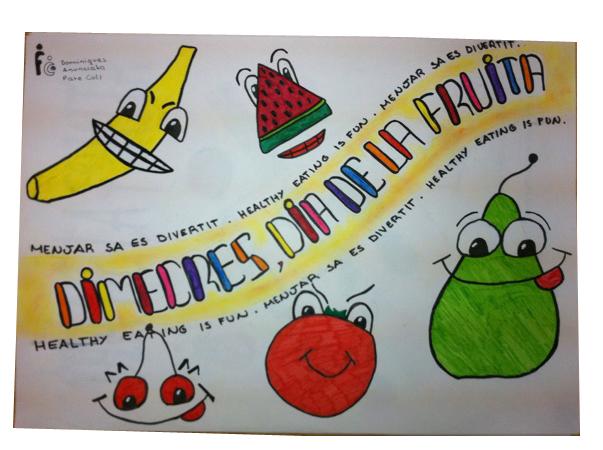 Dominiques
Anunciata
Pare Coll
MENJAR SA ES DIVERTIT. HEALTHY EATING IS FUN. MENJAR SA ES DIVERTIT.
DIMECRES, DIA DE LA FRUITA
HEALTHY EATING IS FUN. MENJAR SA ES DIVERTIT. HEALTHY EATING IS FUN.